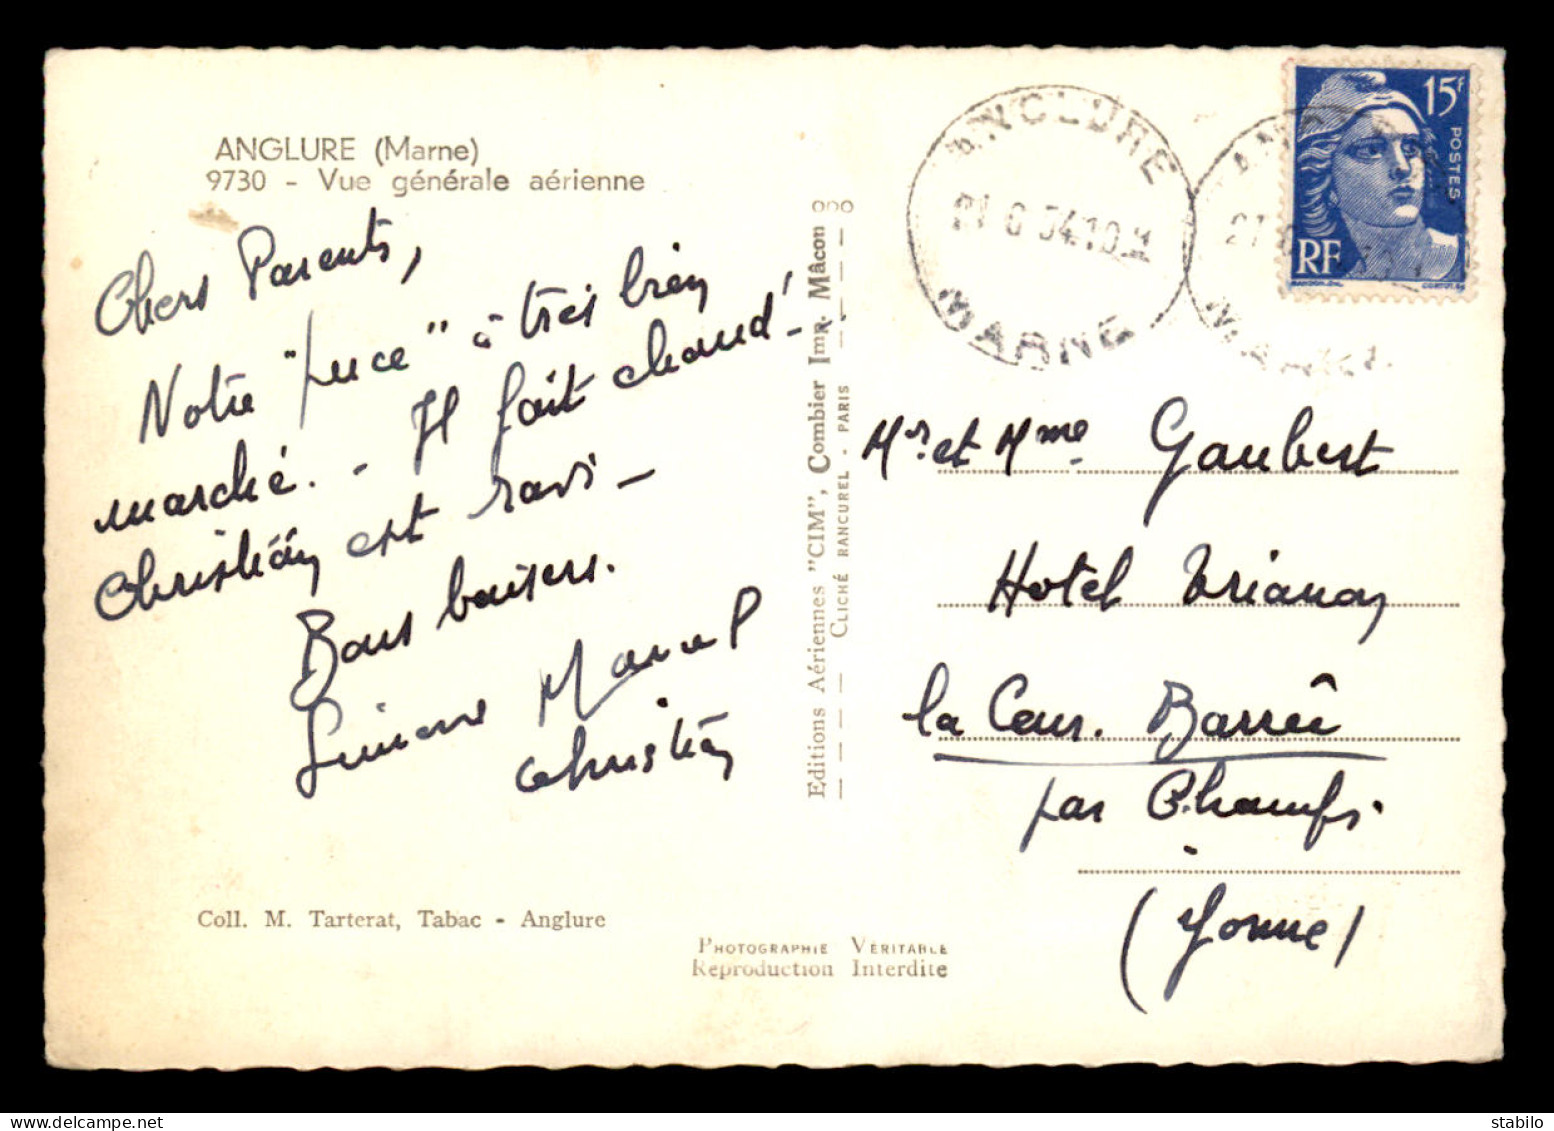 ANGLURE (Marne)
9730 - Vue générale aérienne
Chers Parents,
Notre "puce" à très bien
marché. - Il fait chaud! - .
Christian est ravi -
Bons baisers.
Simone Marcel
Christian
Coll. M. Tarterat, Tabac - Anglure
Editions Aériennes "CIM", Combier Imp. Mâcon
CLICHÉ RANCUREL - PARIS
PHOTOGRAPHIE VÉRITABLE
Reproduction Interdite
ANGLURE
21 6 54 10 H
MARNE
15F
POSTES
RF
Mr et Mme Gaubert
Hotel Trianon
la Cour. Barrée
par Champs.
(Yonne)
stehilo